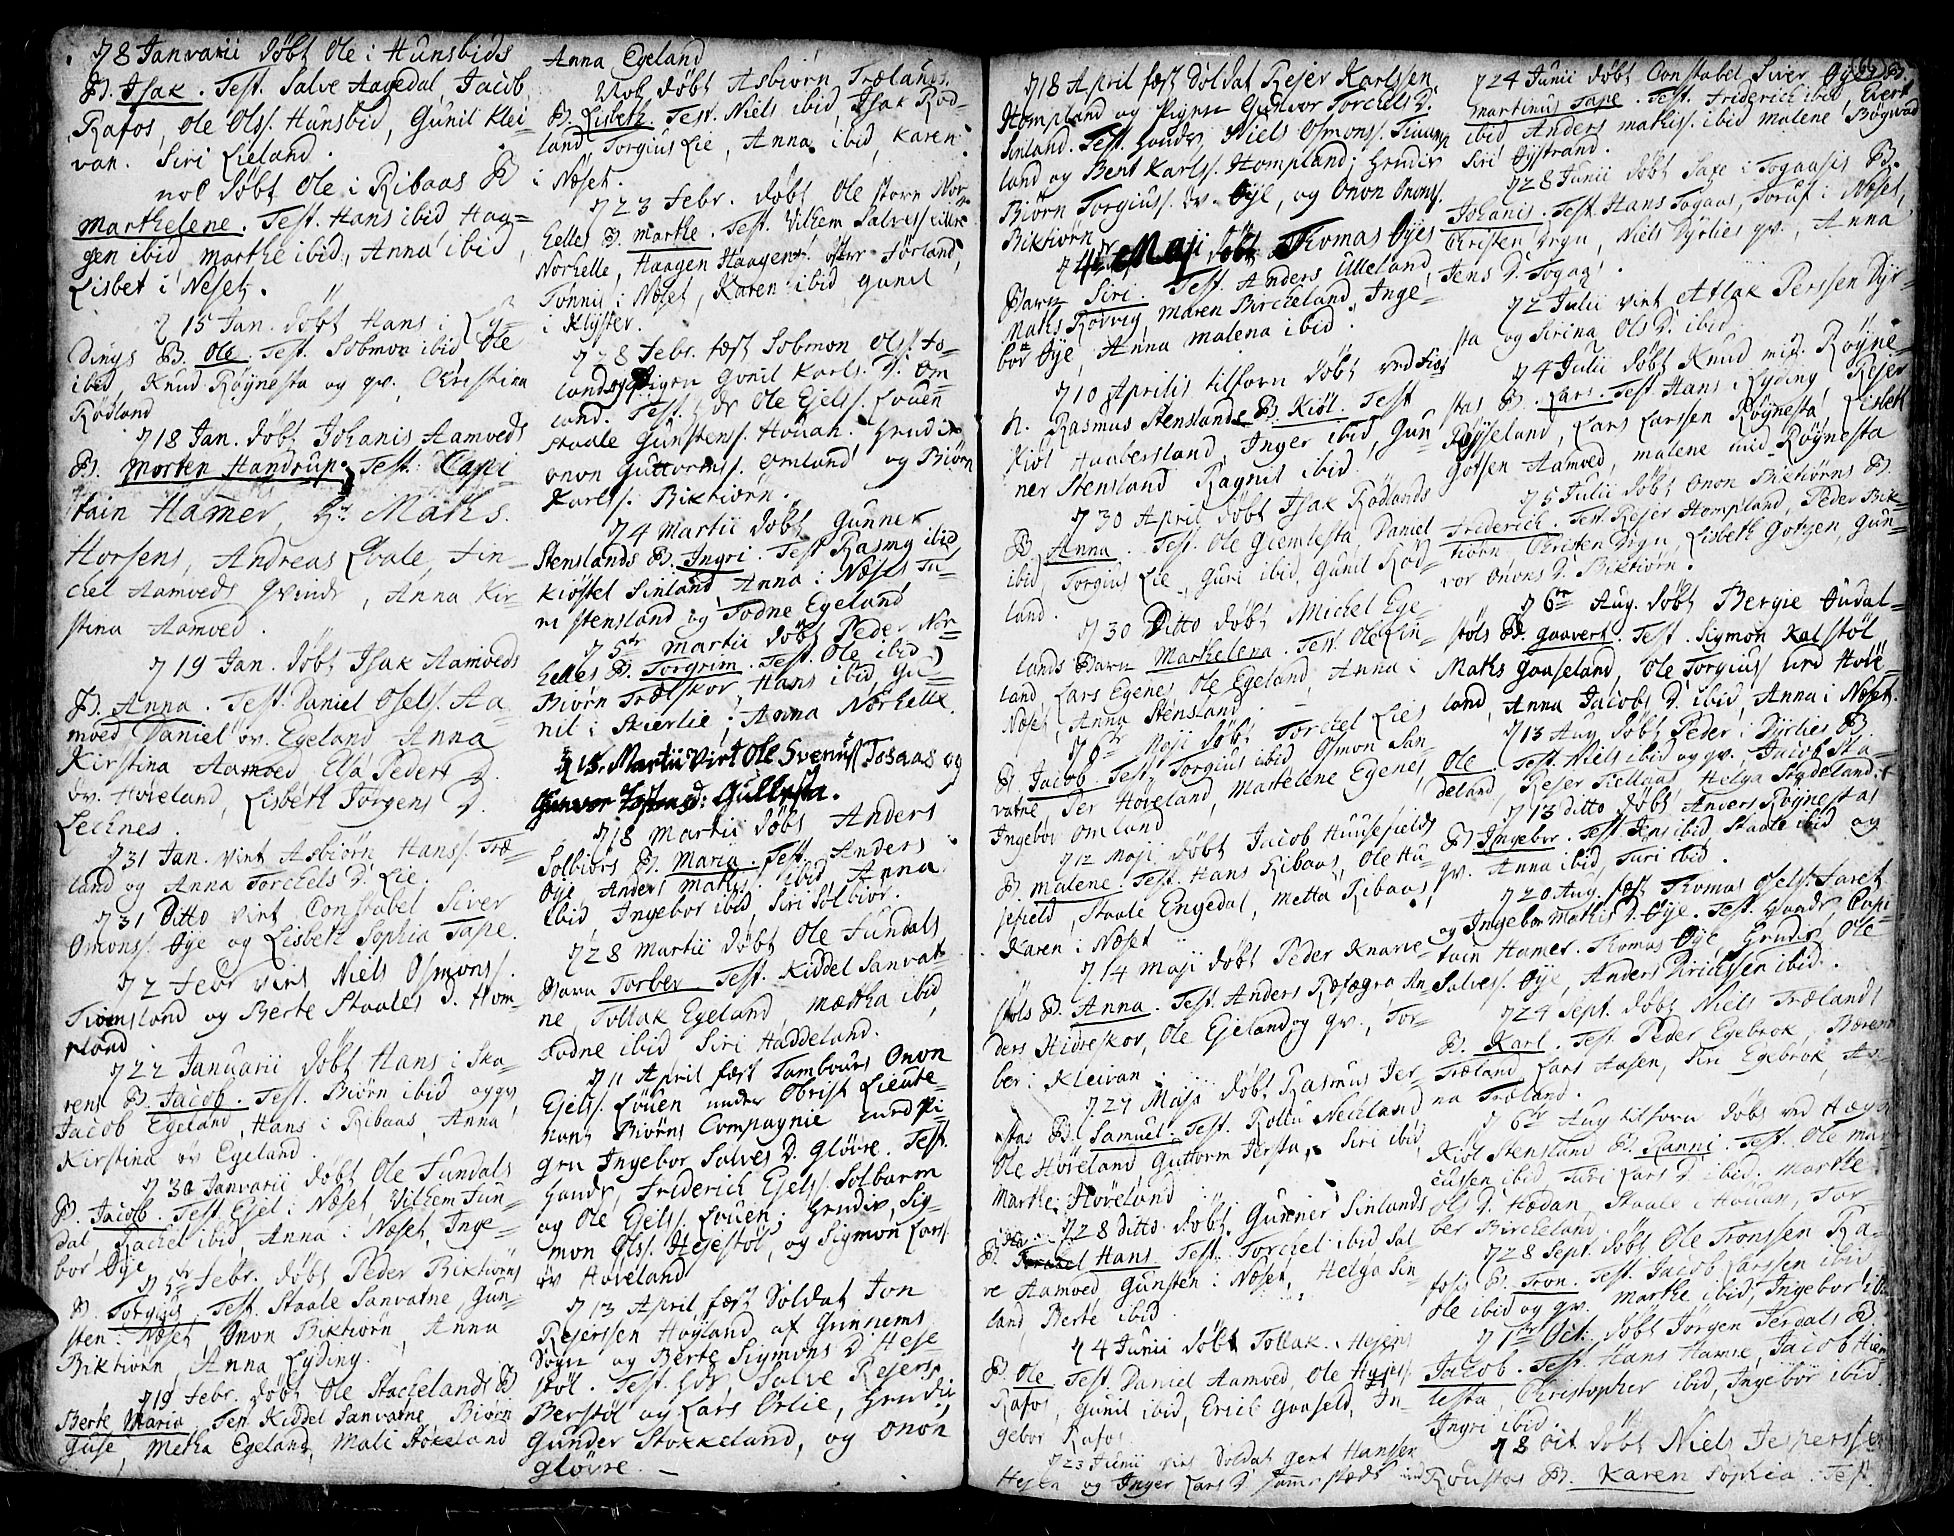 d 8 Janvarii døbt Ole i Hunsbids
B. Isak. Test. Salve Aagedal, Jacob
Rafos, Ole Olss. Hunsbid, Gunil Klei-
van. Siri Lieland.
not døbt Ole i Ribaas B
Marthelene. Test. Hans ibid Haa-
gen ibid marthe ibid, Anna ibid,
Lisbet i Neset.
d 15 Jan. døbt Hans i Ly-
dings B. Ole. Test. Solmon ibid, Ole
ibid, Knud Røynesta og qv. Christina
Rødland
d 18 Jan. døbt Johanis Aamveds
B. Morten Handrup. Test. Capi
tain Hamer, Hr. Maths.
Horsens, Andreas Qvale, Tin-
chel Aamveds Qvinde, Anna Kir-
stina Aamoed.
d 19 Jan. døbt Isak Aamveds
B. Anna. Test. Daniel Osels. Aa-
moed Daniel öv. Egeland Anna
Kirstina Aamoed Elsa Peders D.
öv. Høieland, Lisbeth Jørgens D.
Lechnes.
d 31 Jan. virt Asbiørn Hanss. Træ-
land og Anna Torchels D. Lie.
d 31 Ditto virt Constabel Siver
Omons. Øye og Lisbeth Sophia Tape.
d 2 Febr virt Niels Osmons.
Tiomsland og Berte Staales D. Hom-
pland
d 22 Januarii døbt Hans i Ska-
rens B. Jacob. Test. Biørn ibid og qv
Jacob Egeland, Hans i Ribaas, Anna
Kirstina öv Egeland.
d 30 Janvarii døbt Ole Sundals
B. Jacob. Test. Ejel i Næset, Vilhem Sun-
dal, Rachel ibid, Anna i Næset, Inge-
bor Øye
d 5te Febr. døbt Peder Biktiørns
B Torgius. Test. Staale Sanvatne, Gun-
sten i Næset, Onon Biktiørn, Anna
Biktiørn, Anna Lyding.
d 19 Febr. døbt Ole Stachelands B
Berte Maria. Test. Kiddel Sanvatne, Biørn
Guse, Metha Egeland, Mali Støkeland
Anna Egeland
Not døbt Asbiørn Trælands
B. Lisbeth. Test. Niels ibid, Isak Rød-
land, Torgius Lie, Anna ibid, Karen
i Næset.
d 23 Febr. døbt Ole Storn Nor-
helles B. marthe. Test. Vilhem Salvess lille
Norhelle, Haagen Haagens. Østre Førland,
Tønnis i Næset, Karen ibid Gunil
i Klyster.
d 28 Febr. fæst Solmon Ols. Ho-
land og Pigen Gunil Karls D. Om
land. Test. for Ole Ejels. Løuen
Staale Gunstens. Houan. Hendis
onon Guttorms. Omland og Biørn
Karls. Biktiørn.
d 4 Martii døbt Gunner
Stenslands B. Ingri. Test Rasmus ibid
Kiøstel Sinland Anna i Næset Tu-
ri Stensland og Todne Egeland
d 5te Martii døbt Peder Nor-
helles B. Torgrim. Test. Ole ibid
Biørn Træskor, Hans ibid, Gu-
nil i Skierlie, Anna Nørhelle.
d 15. Martii virt Ole Svenuss. Tosaas og
Gunvor Tostens D: Gullesta.
d 18 Martii døbt Anders
Solbiørs B. Maria. Test. Anders
Øye Anders Mathis. ibid Anna
ibid Ingebor ibid, Siri Solbiør.
d 28 Martii døbt Ole Sundals
Barn Torber. Test. Kiddel Sanvat-
ne, Tollak Egeland, Mættha ibid,
Todne ibid Siri Haddeland.
d 11 April fæst Tambour Onon
Ejels. Løuen under Obrist Lieute-
nant Biørns Compagnie med Pi-
gen Ingebor Salves D. Gløvre. Test.
Hands, Friderich Ejels. Solbarm
og Ole Ejels. Louen; Hendis, Sig-
mon Ols. Hejestøl, og Sigmon Lars.
öv Høveland
d 13 April fæst Soldat Jon
Rejerssen Høyland af Gunnems
Sogn og Berte Sigmons D. Heje
støl. Test. Hans, Salve Rejers.
Berstøl og Lars Ørlie, Hendis
Gunder Stokkeland, og Onon
Gløvre.
d 18 April fæst Soldat Rejer Karlssen
Hompland og Pigen Gunvor Torchels D.
Sinland. Test. Hands, Niels Osmons. Tiuam
land og Bent Karls. Hompland; Hendis
Biørn Torgiuss. öv. Øye, og Onon Onons.
Biktiørn
d 4de Maji døbt Thomas Øyes
Barn Siri. Test. Anders Ulleland
Maths Rødvig, Maren Bircheland, Inge-
bor Øye, Anna malena ibid.
d 10 Aprilis tilforn døbt ved Fios
h. Rasmus Stenslands B. Kiøl. Test
Kiøl Haabersland, Inger ibid, Gun
ner Stensland Ragnil ibid.
d 30 April døbt Isak Rødlands
B. Anna. Test. Ole Giemlesta, Daniel
ibid Torgius Lie, Guri ibid, Gunil Rød-
land.
d 30 Ditto døbt Michel Ege
lands Barn Marthelena. Test. Ole Lin-
land, Lars Egenes, Ole Egeland, Anna i
Næset, Anna Stensland.
d 6te Maji døbt Torchel Lies
B Jacob. Test. Torgius ibid Osmon San-
vatne Per Høveland, Marthelene Egenes
Ingebor Omland
d 12 Maji døbt Jacob Huusefields
B Malene. Test. Hans Ribaas, Ole Hu-
sefield, Staale Engedal, Metta Ribaas,
Karen i Næset
d 14 Maji døbt Peder Knarre
støls B. Anna. Test. Anders Refægra An-
ders Hidreskov, Ole Ejeland og qv., Tor-
ber i Kleivan.
d 27 Maji døbt Rasmus Jer-
stas B. Samuel. Test. Rollu Neckland
Ole Høveland, Guttorm Jersta, Siri ibid,
Marthe Høveland
d 28 Ditto døbt Gunner Sinlands
B. Torchel Hans. Test. Torchel ibid Sal
ve Aamoed, Gunsten i Næset, Helga Sin-
land, Berte ibid.
d 4 Junii døbt Tollak Hejers
B. Ole. Test Daniel Aamoed, Ole
Rafos, Gunil ibid, Erich Gaaseld, In-
gebor Rafos
d 23 Junii virt Soldat Gert Hanssen
og Inger Lars D. sammestæds ibid
d 24 Junii døbt Constabel Siver Øyes B.
Martinus Tape. Test. Friderich ibid, Evert
ibid Anders mathiss. ibid Malene Bøgvad
Siri Øystrand.
d 28 Junii døbt Saxe i Togaasis B.
Johanis. Test. Hans Togaas, Toruf i Næset,
Christen Degn, Niels Dyrlies qv., Anna
Jens D. Togaas.
d 2 Julii virt Aslak Perssen Dyr-
sta og Sirina Ols D. ibid.
d 4 Julii døbt Knud mid. Røyne-
stas B. Lars. Test. Hans i Lyding Rejer
Røyseland, Lars Larssen Røynesta, Lisbeth
Gotsen Aamoed, malene mid Røynesta
d 5 Julii døbt Onon Biktiørns B.
Friderich. Test. Rejer Hompland, Peder Bik-
tiørn, Christen Degn, Lisbeth Gotzen, Gun-
vor Onons D. Biktiørn.
d 6te Aug. døbt Bergie Øudal-
støls B. Gaavert. Test. Sigmon Kalstøl
Maths Gaaseland, Ole Torgius lird Høie-
land, Anna Jacobs D. ibid, Anna i Næset.
d 13 Aug. døbt Peder i Dyrlies B.
Ole. Test. Niels ibid og qv., Jacob Sta-
deland, Rejer Fiellaas, Helga Stydeland
d 13 Ditto døbt Anders Røynestas
B. Ingebor. Test. Jens ibid, Staale ibid og
qv. Anna ibid, Turi ibid.
d 20 Aug. fæst Thomas Osels. Faret
og Ingebor Mathis D. Øye. Test. Hands, Capi-
tain Hamer. Thomas Øye, Hendis Ole
Salves. Øye, Anders Dirichssen ibid.
d 24 Sept. døbt Niels Trælands
B. Karl. Test. Peder Egebrok, Børenn
Træland, Lars Aasen, Siri Egebrok, An-
na Træland.
d 6te Aug tilforn døbt ved Hægg
Kiøl Stensland B. Ranni. Test. Ole Mar
cussen ibid, Turi Lars D. ibid. Marthe
Ols D. Hædan, Staale i Houan, Tor-
ber Bircheland
d 28 Sept. døbt Ole Tronssen Ra-
fos B. Tron. Test. Jacob Larssen ibid
Ole ibid og qv. Marthe ibid, Ingebor ibid
d 1te Oct. døbt Jørgen Jerdals B.
Jacob. Test. Hans Hamre, Jacob Hiem
lesta, Christopher ibid, Ingebor ibid.
Ingri ibid.
d 8 Oct. døbt Niels Jesperssen
Roustas B. Karen Sophia. Test.